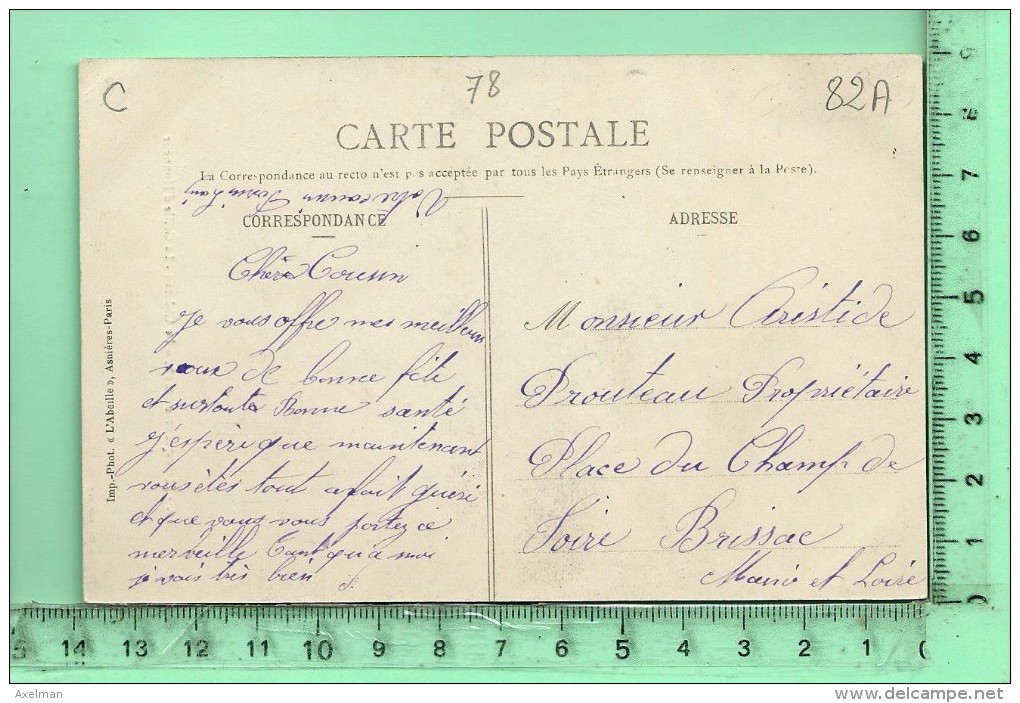 C
78
82A
CARTE POSTALE
La Correspondance au recto n'est pas acceptée par tous les Pays Étrangers (Se renseigner à la Poste).
Votre cousin
CORRESPONDANCE
Cher Cousin
Je vous offre mes meilleurs
vœux de bonne fête
et surtout Bonne santé
J'espère que maintenant
vous êtes tout a fait guéri
et que vous vous portez a
merveille Tant qu'a moi
je vais très bien
Imp.-Phot. « L'Abeille », Asnières-Paris
ADRESSE
Monsieur Aristide
Prouteau Propriétaire
Place du Champ de
Foire Brissac
Maine et Loire
9
8
7
6
5
4
3
2
1
0
15 14 13 12 11 10 9 8 7 6 5 4 3 2 1 0
Axelman
www.delcampe.net